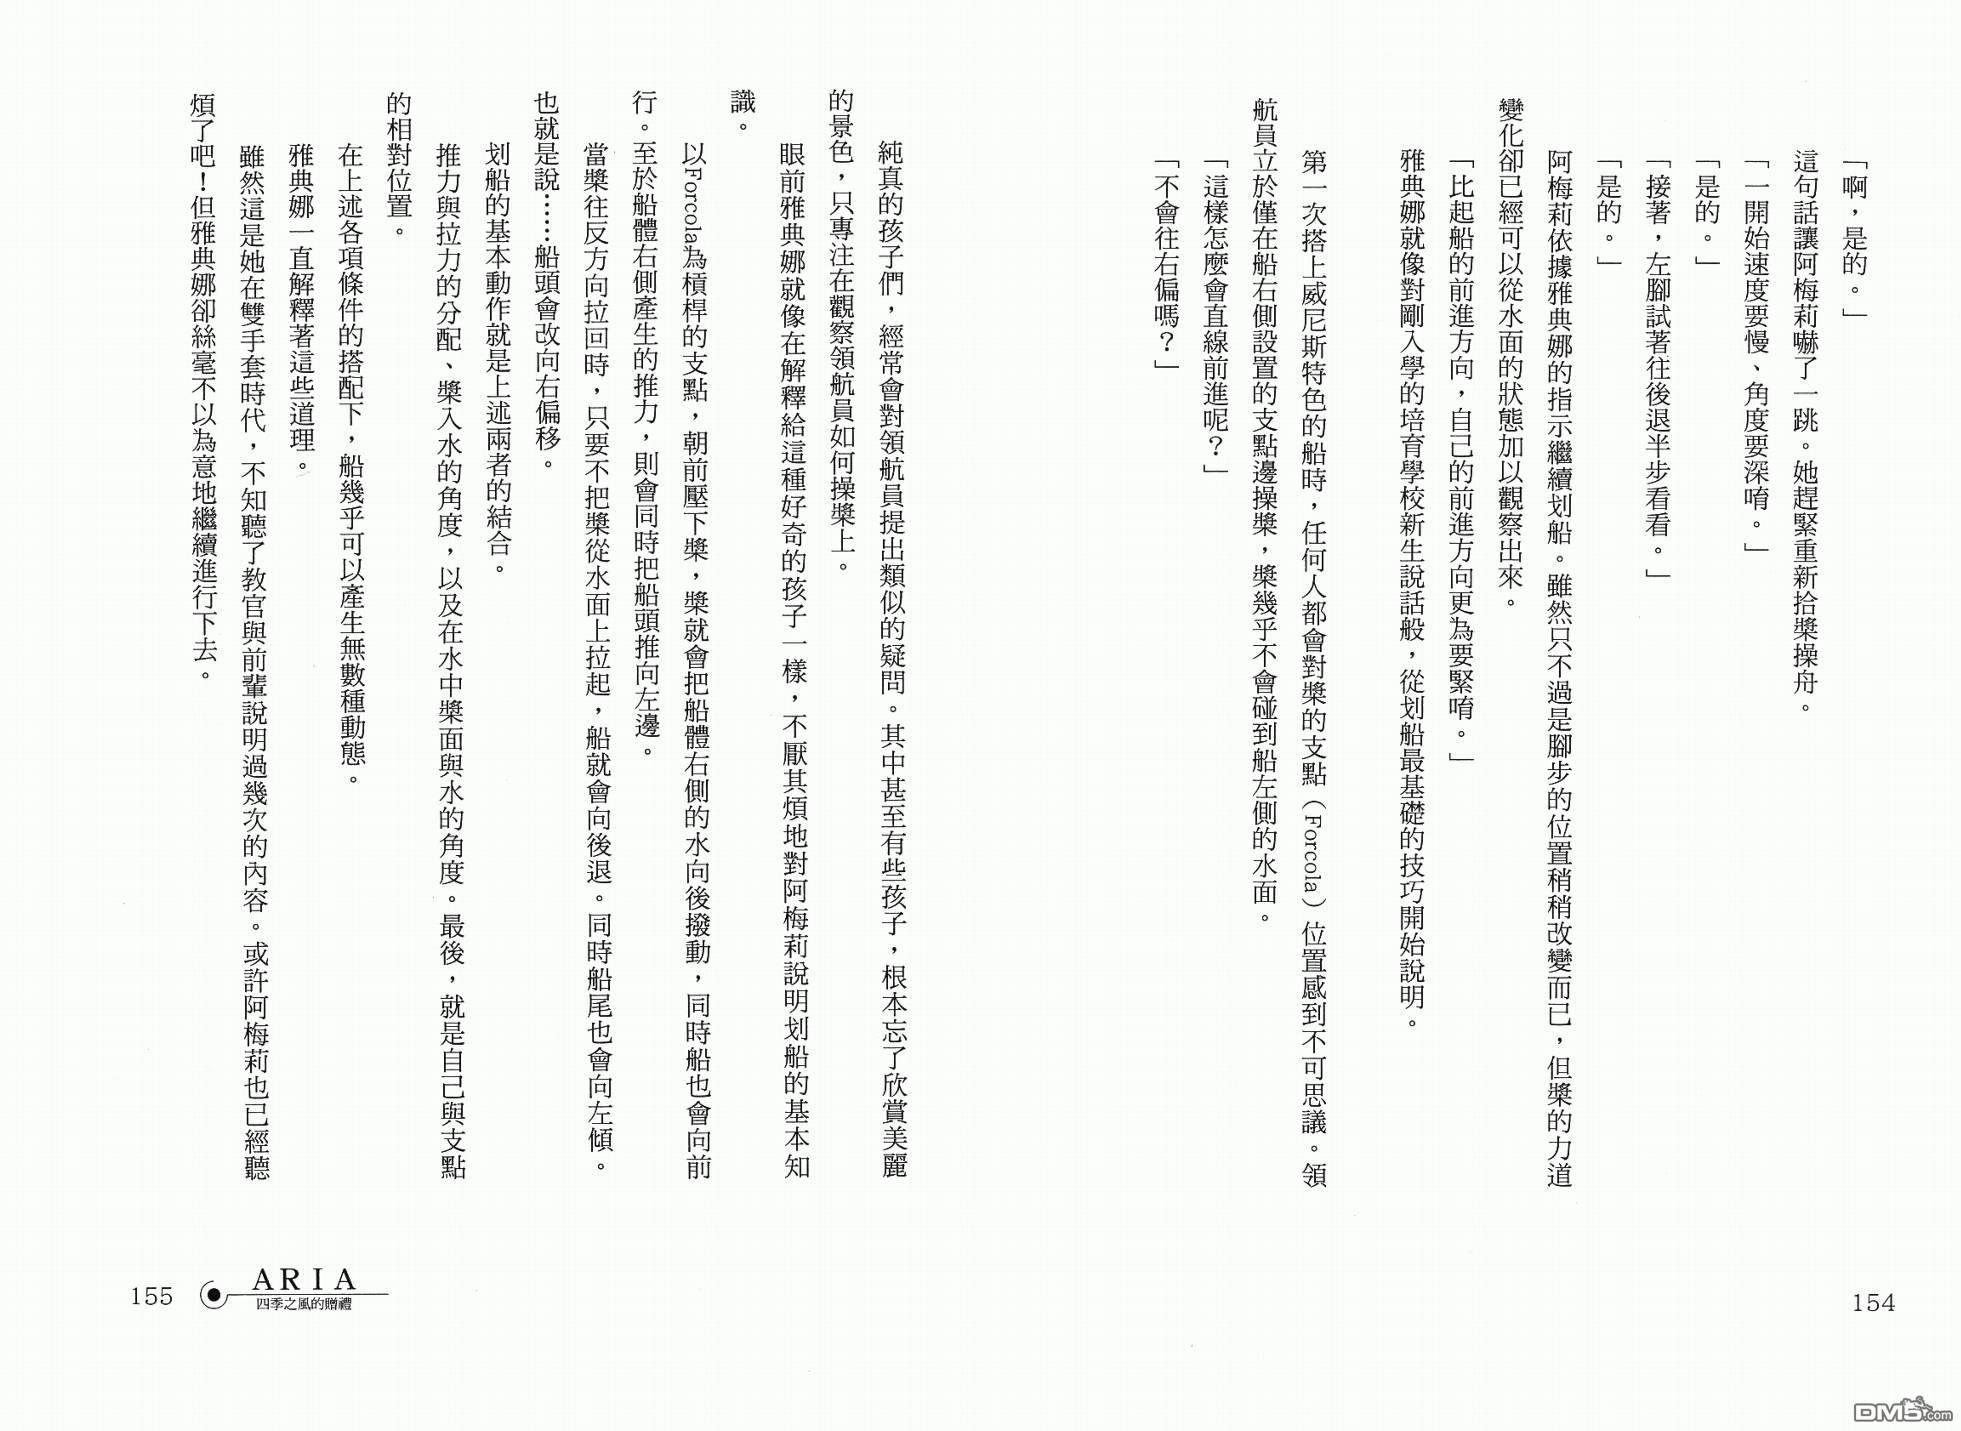 「啊，是的。」
這句話讓阿梅莉嚇了一跳。她趕緊重新拾槳操舟。
「一開始速度要慢、角度要深唷。」
「是的。」
「接著，左腳試著往後退半步看看。」
「是的。」
阿梅莉依據雅典娜的指示繼續划船。雖然只不過是腳步的位置稍稍改變而已，但槳的力道
變化卻已經可以從水面的狀態加以觀察出來。
「比起船的前進方向，自己的前進方向更為要緊唷。」
雅典娜就像對剛入學的培育學校新生說話般，從划船最基礎的技巧開始說明。
第一次搭上威尼斯特色的船時，任何人都會對槳的支點（Forcola）位置感到不可思議。領
航員立於僅在船右側設置的支點邊操槳，槳幾乎不會碰到船左側的水面。
「這樣怎麼會直線前進呢？」
「不會往右偏嗎？」
純真的孩子們，經常會對領航員提出類似的疑問。其中甚至有些孩子，根本忘了欣賞美麗
的景色，只專注在觀察領航員如何操槳上。
眼前雅典娜就像在解釋給這種好奇的孩子一樣，不厭其煩地對阿梅莉說明划船的基本知
識。
以Forcola為槓桿的支點，朝前壓下槳，槳就會把船體右側的水向後撥動，同時船也會向前
行。至於船體右側產生的推力，則會同時把船頭推向左邊。
當槳往反方向拉回時，只要不把槳從水面上拉起，船就會向後退。同時船尾也會向左傾。
也就是說……船頭會改向右偏移。
划船的基本動作就是上述兩者的結合。
推力與拉力的分配、槳入水的角度，以及在水中槳面與水的角度。最後，就是自己與支點
的相對位置。
在上述各項條件的搭配下，船幾乎可以產生無數種動態。
雅典娜一直解釋著這些道理。
雖然這是她在雙手套時代，不知聽了教官與前輩說明過幾次的內容。或許阿梅莉也已經聽
煩了吧！但雅典娜卻絲毫不以為意地繼續進行下去。
154
155
ARIA
四季之風的贈禮
DM5.com